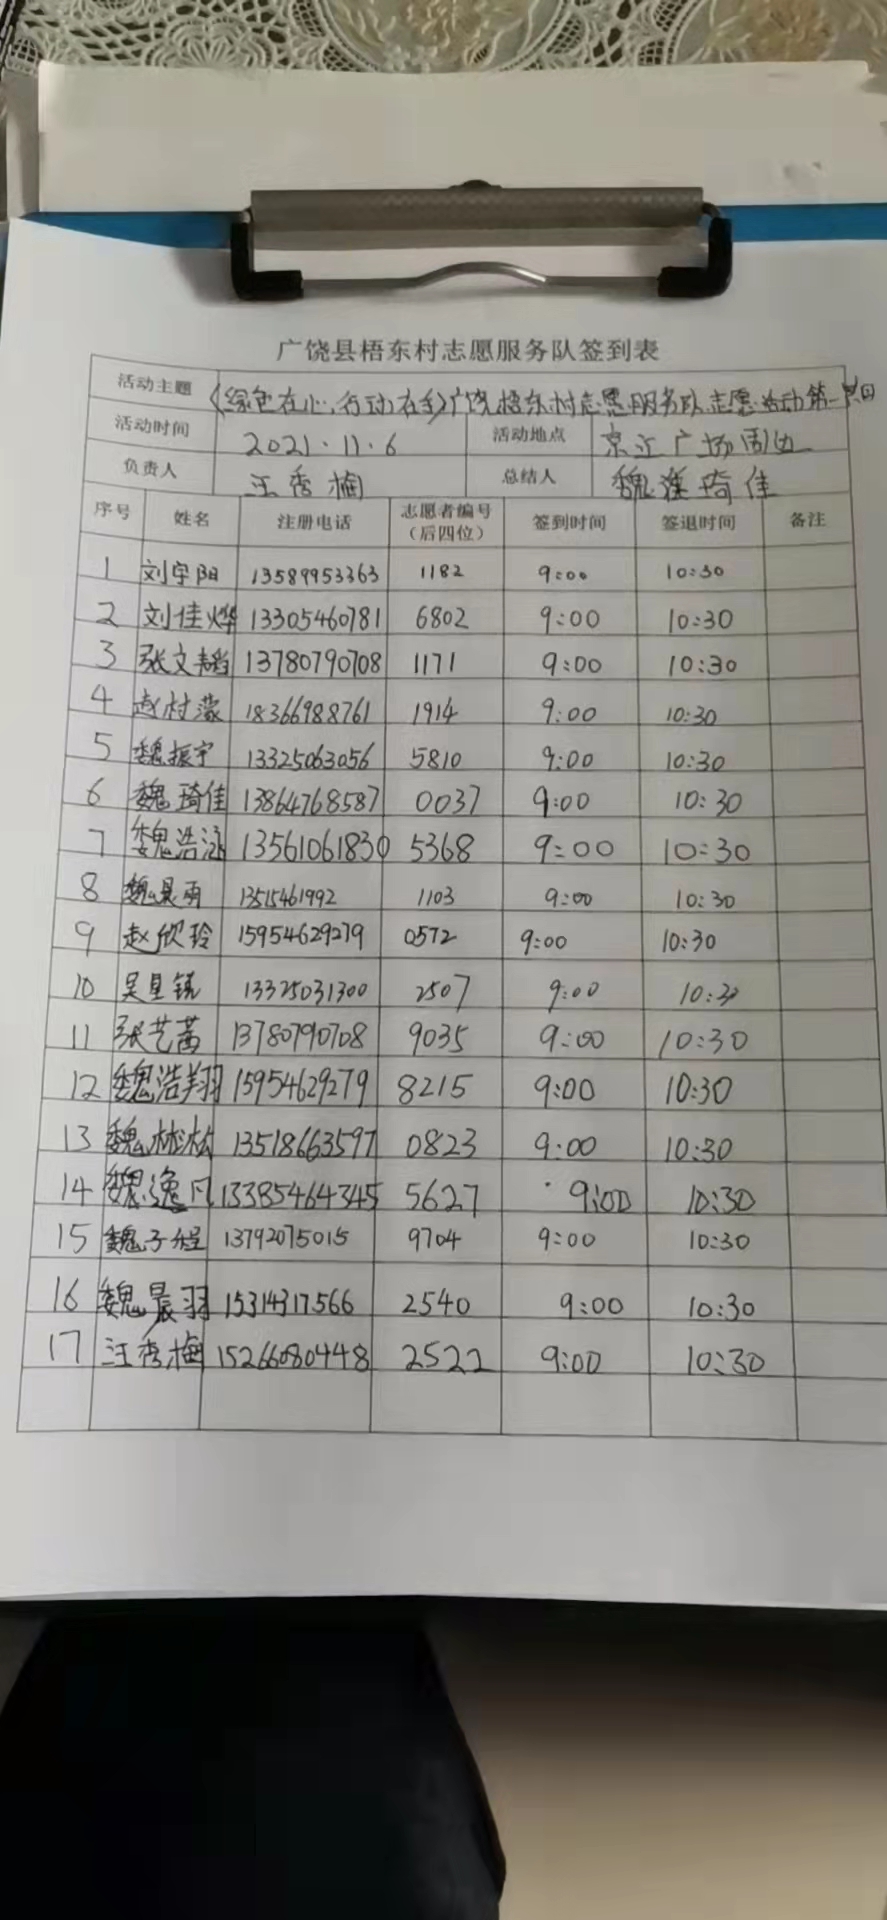 广饶县梧东村志愿服务队签到表
活动主题 《绿色在心,行动在手》广饶梧东村志愿服务队志愿活动第一回
活动时间 2021.11.6 活动地点 广场周边
负责人 汪秀梅 总结人 魏 琦佳
序号 姓名 注册电话 志愿者编号(后四位) 签到时间 签退时间 备注
1 刘宇阳 13589953363 1182 9:00 10:30
2 刘佳烨 13305460781 6802 9:00 10:30
3 张文韬 13780790708 1171 9:00 10:30
4 赵村濛 18366988761 1914 9:00 10:30
5 魏振宇 13325063056 5810 9:00 10:30
6 魏琦佳 13864768587 0037 9:00 10:30
7 魏浩泳 13561061830 5368 9:00 10:30
8 魏昊雨 13515461992 1103 9:00 10:30
9 赵欣玲 15954629279 0572 9:00 10:30
10 吴星锐 13325031300 2507 9:00 10:30
11 张艺菡 13780790708 9035 9:00 10:30
12 魏浩翔 15954629279 8215 9:00 10:30
13 魏彬松 13518663597 0823 9:00 10:30
14 魏逸凡 13385464345 5627 9:00 10:30
15 魏子程 13792075015 9704 9:00 10:30
16 魏晨羽 15314317566 2540 9:00 10:30
17 汪秀梅 15266080448 2522 9:00 10:30